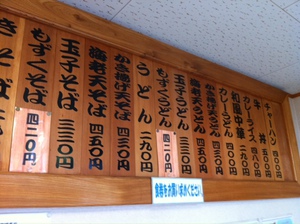 チャーハン 四〇〇円
牛丼 五〇〇円
カレーライス 四八〇円
和風中華 四〇〇円
カレーうどん 四〇〇円
かき揚げうどん 四〇〇円
海老天うどん 四五〇円
玉子うどん 三三〇円
もずくうどん 四二〇円
うどん 二九〇円
かき揚げ天そば 四〇〇円
海老天そば 四五〇円
玉子そば 三三〇円
もずくそば 四二〇円
きそば
食券をお買い求めください